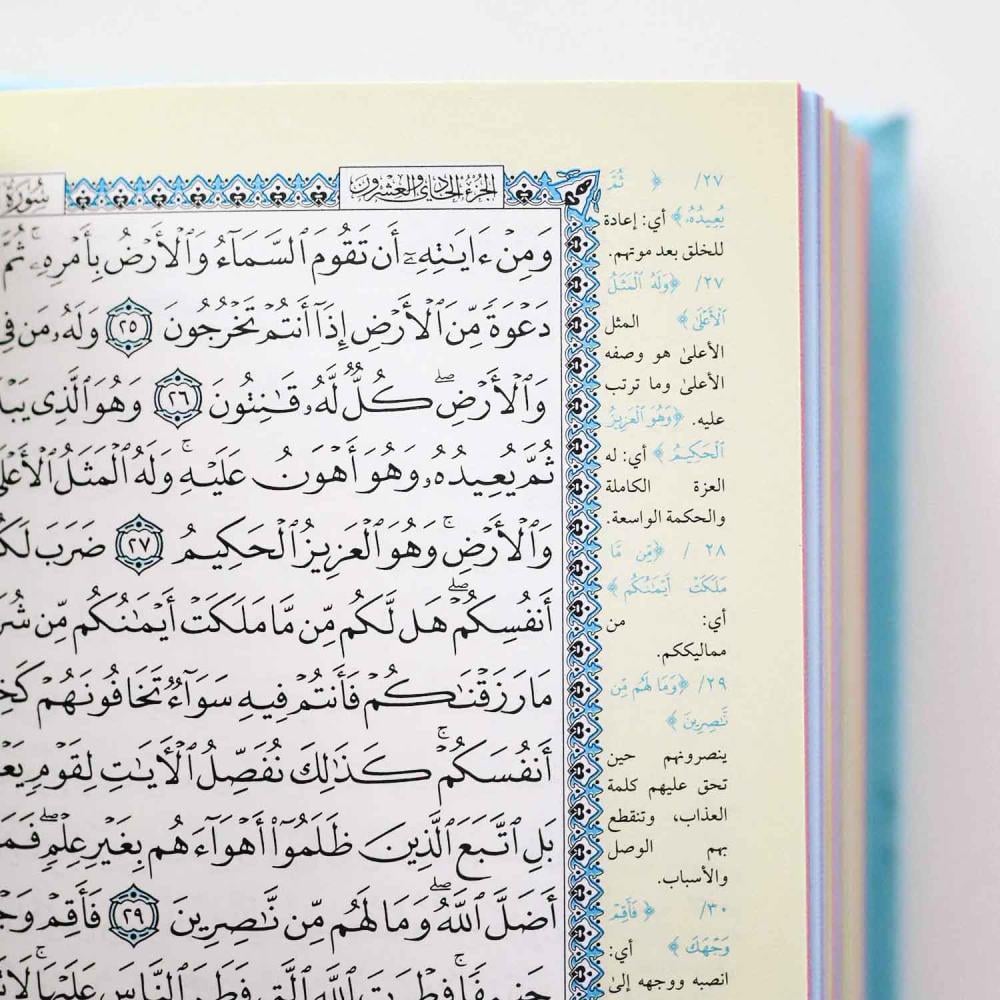 سُورَةُ
الجُزْءُ الحَادِي وَالعِشْرُونَ
وَمِنْ ءَايَٰتِهِۦٓ أَن تَقُومَ ٱلسَّمَآءُ وَٱلْأَرْضُ بِأَمْرِهِۦۚ ثُمَّ
دَعْوَةً مِّنَ ٱلْأَرْضِ إِذَآ أَنتُمْ تَخْرُجُونَ ٢٥ وَلَهُۥ مَن فِي
وَٱلْأَرْضِۖ كُلٌّ لَّهُۥ قَٰنِتُونَ ٢٦ وَهُوَ ٱلَّذِي
ثُمَّ يُعِيدُهُۥ وَهُوَ أَهْوَنُ عَلَيْهِۚ وَلَهُ ٱلْمَثَلُ ٱلْأَعْلَىٰ
وَٱلْأَرْضِۚ وَهُوَ ٱلْعَزِيزُ ٱلْحَكِيمُ ٢٧ ضَرَبَ
أَنفُسِكُمْۖ هَل لَّكُم مِّن مَّا مَلَكَتْ أَيْمَٰنُكُم مِّن
مَا رَزَقْنَٰكُمْ فَأَنتُمْ فِيهِ سَوَآءٌ تَخَافُونَهُمْ
أَنفُسَكُمْۚ كَذَٰلِكَ نُفَصِّلُ ٱلْأٓيَٰتِ لِقَوْمٍ
بَلِ ٱتَّبَعَ ٱلَّذِينَ ظَلَمُوٓا۟ أَهْوَآءَهُم بِغَيْرِ عِلْمٍۖ
أَضَلَّ ٱللَّهُۖ وَمَا لَهُم مِّن نَّٰصِرِينَ ٢٩ فَأَقِمْ
حَنِيفًاۚ فِطْرَتَ ٱللَّهِ ٱلَّتِي فَطَرَ ٱلنَّاسَ عَلَيْهَاۚ لَا
٢٧/ ﴿ ثُمَّ
يُعِيدُهُۥ ﴾ أي: إعادة
للخلق بعد موتهم.
٢٧/ ﴿وَلَهُ ٱلْمَثَلُ
ٱلْأَعْلَىٰ ﴾ المثل
الأعلىٰ هو وصفه
الأعلىٰ وما ترتب
عليه. ﴿وَهُوَ ٱلْعَزِيزُ
ٱلْحَكِيمُ ﴾ أي: له
العزة الكاملة
والحكمة الواسعة.
٢٨ / ﴿مِّن مَّا
مَلَكَتْ أَيْمَٰنُكُم ﴾
أي: من
مماليككم.
٢٩/ ﴿وَمَا لَهُم مِّن
نَّٰصِرِينَ ﴾
ينصرونهم حين
تحق عليهم كلمة
العذاب، وتنقطع
بهم الوصل
والأسباب.
٣٠/ ﴿ فَأَقِمْ
وَجْهَكَ ﴾ أي:
انصبه ووجهه إلىٰ